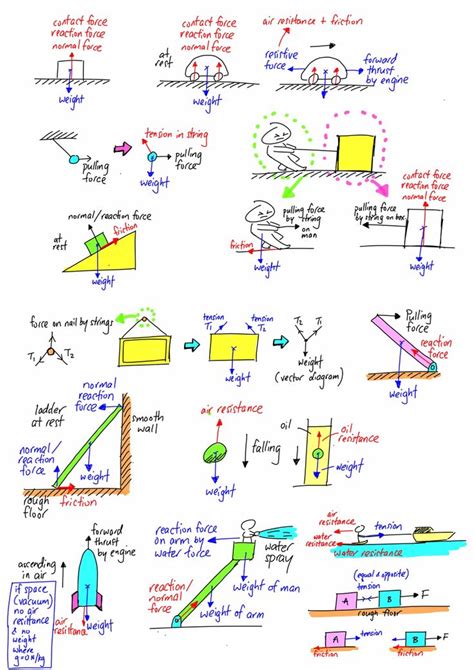 contact force
reaction force
normal force
weight
at
rest
contact force
reaction force
normal force
weight
air resistance + friction
resistive
force
forward
thrust
by engine
weight
pulling
force
tension in string
pulling
force
weight
normal/reaction force
at
rest
friction
weight
pulling force
by string
on
man
friction
weight
contact force
reaction force
normal force
pulling force
by string on box
weight
force on nail by strings
T1
T2
tension
T1
tension
T2
weight
T2
T1
weight
(vector diagram)
Pulling
force
reaction
force
weight
normal
reaction
force
ladder
at rest
smooth
wall
normal/
reaction
force
weight
rough
floor
friction
air resistance
falling
weight
oil
oil
resistance
weight
ascending
in air
forward
thrust
by engine
if space
(vacuum)
no air
resistance
& no
weight
where
g=0N/kg
air
resistance
weight
reaction force
on arm by
water force
water
spray
reaction/
normal
force
weight of man
weight of arm
air
resistance
tension
water
resistance
water resistance
tension
(equal & opposite)
A
B
F
rough floor
A
tension
friction
tension
B
F
friction